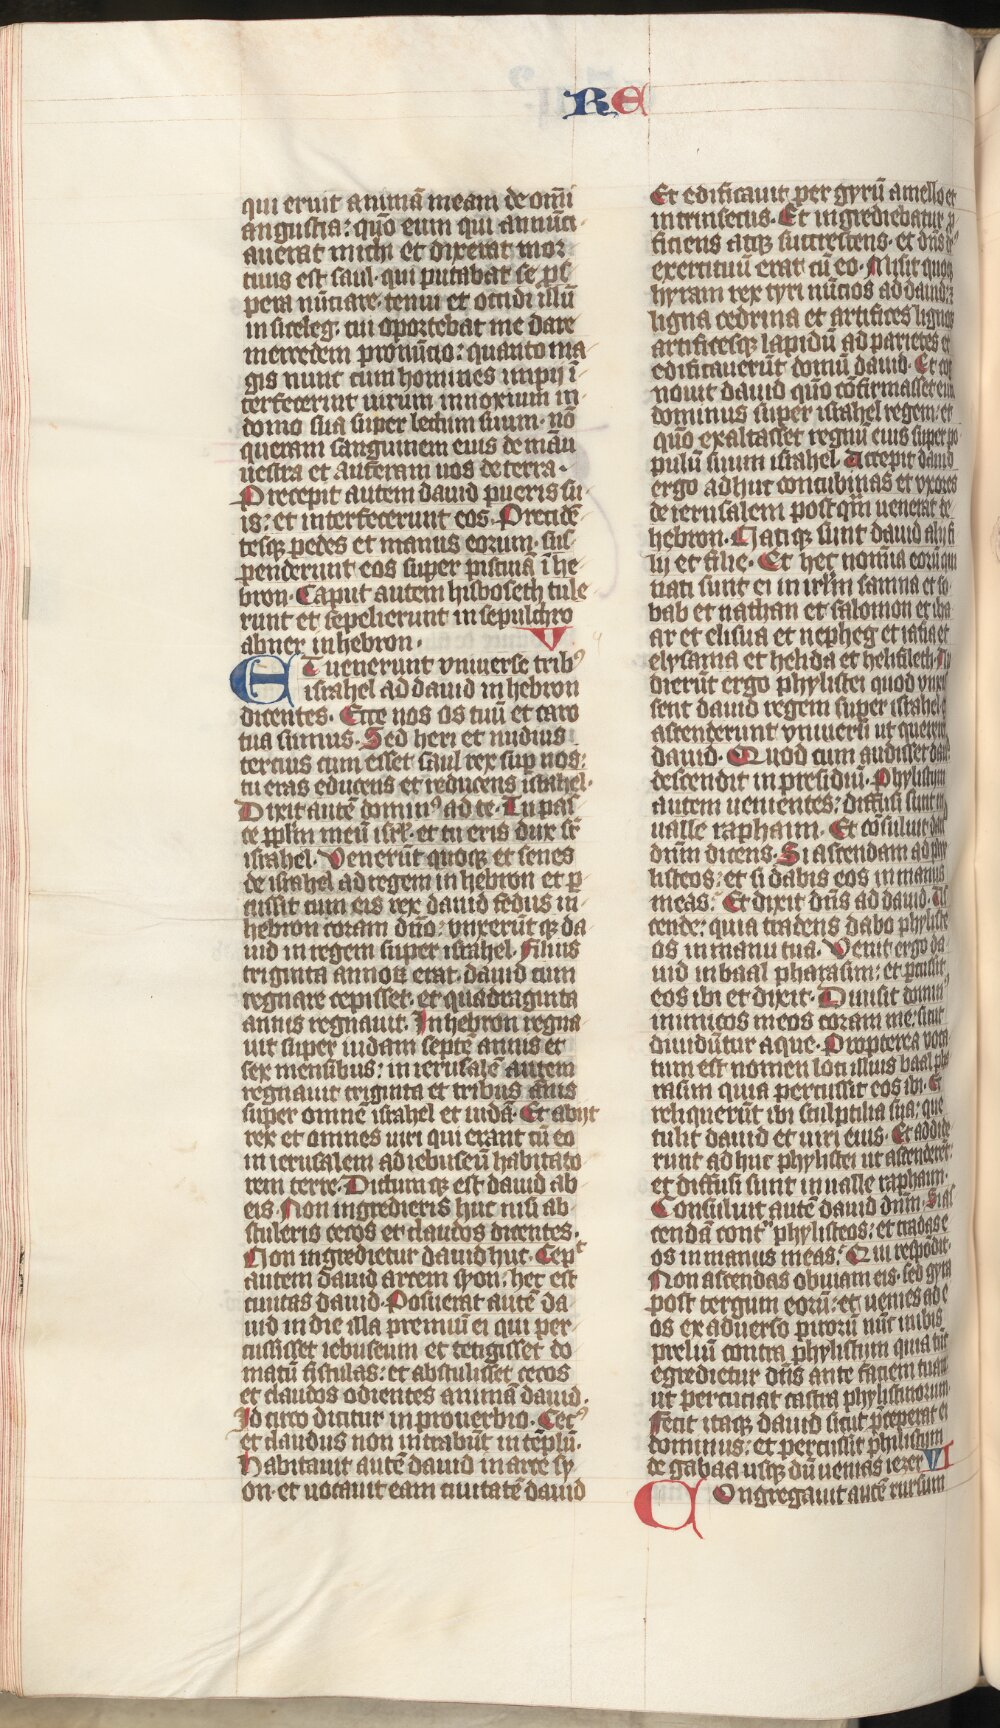 RE
qui eruit animā meam de om̄i
angustia: quō eum qui annūci
auerat michi et dixerat mor
tuus est saul· qui putabat se ꝓs
pera nūciare· tenui et occidi illū
in siceleg· cui oportebat me dare
mercedem pro nūcio: quanto ma
gis nunc cum homines impij ī
terfecerint uirum innoxium in
domo sua super lectum suum· nō
queram sanguinem eius de māu
uestra et auferam uos de terra·
Precepit autem dauid pueris su
is: et interfecerunt eos· Preciden
tesqꝫ pedes et manus eorum· sus
penderunt eos super piscinā ī he
bron· Caput autem hisboseth tule
runt et sepelierunt in sepulchro
abner in hebron· V
ET uenerunt vniuerse tribꝰ
israhel ad dauid in hebron
dicentes· Ecce nos os tuū et caro
tua sumus· Sed heri et nudius
tercius cum esset saul rex suꝑ nos:
tu eras educens et reducens israhel·
Dixit autē dominꝰ ad te· Tu pas
ce ipplm̄ meū isrl̓· et tu eris dux sr̄
israhel· Venerūt quoqꝫ et senes
de israhel ad regem in hebron et ꝑ
cussit cum eis rex dauid fedus in
hebron coram dn̄o: vnxerūt qꝫ da
uid in regem super israhel· Filius
triginta annoꝝ erat dauid cum
regnare cepisset· et quadraginta
annis regnauit· In hebron regna
uit super iudam septē annis et
sex mensibus: in ierusalē autem
regnauit triginta et tribus ānis
super omnē israhel et iudā· Et abijt
rex et omnes uiri qui erant cū eo
in ierusalem ad iebuseū habitato
rem terre· Dictum qꝫ est dauid ab
eis· Non ingredieris huc nisi ab
stuleris cecos et claudos dicentes·
Non ingredietur dauid huc· Cepᵗ
autem dauid arcem syon: hec est
ciuitas dauid· Posuerat autē da
uid in die illa premiū ei qui per
cussisset iebuseum et tetigisset do
matū fistulas: et abstulisset cecos
et claudos odientes animā dauid·
Id circo dicitur in prouerbio· Cecꝰ
et claudus non intrabūt in tēplū·
Habitauit autē dauid in arce sy
on· et uocauit eam ciuitatē dauid
Et edificauit per gyrū a mello et
intrinsecus· Et ingrediebatur ꝓ
ficiens atqꝫ succrescens· et dn̄s
exercituū erat cū eo· Misit quoqꝫ
hyram rex tyri nūcios ad dauid: ⁊
ligna cedrina et artifices lignoꝝ
artificesqꝫ lapidū ad parietes et
edificauerūt domū dauid· Et cog
nouit dauid quō cōfirmasset eum
dominus super israhel regem: et
quō exaltasset regnū eius super po
pulū suum israhel· Accepit dauid
ergo adhuc concubinas et vxores
de ierusalem postqm̄ uenerat de
hebron· Natiqꝫ sunt dauid alij fi
lij et filie· Et hec nomina eorū qui
nati sunt ei in irl̓m samna et so
bab et nathan et salomon et iba
ar et elisua et nepheg et iafia et
elysama et helida et helifileth· Au
dierūt ergo phylistei quod vnxis
sent dauid regem super israhel·
ascenderunt vniuersi ut quererent
dauid· Quod cum audisset dauid
descendit in presidiū· Phylistiim
autem uenientes: diffusi sunt in
ualle raphaim· Et cōsuluit dauid
dn̄m dicens· Si ascendam ad phy
listeos: et si dabis eos in manus
meas· Et dixit dn̄s ad dauid· As
cende: quia tradens dabo phyliste
os in manu tua· Venit ergo da
uid in baal pharasim: et percussit
eos ibi et dixit· Diuisit dominꝰ
inimicos meos coram me: sicut
diuidūtur aque· Propterea voca
tum est nomen loci illius baal pha
rasim quia percussit eos ibi· Et
reliquerūt ibi sculptilia sua: que
tulit dauid et uiri eius· Et addide
runt adhuc phylistei ut ascenderēt:
et diffusi sunt in ualle raphaim·
Consuluit autē dauid dn̄m· Si as
cendā contᵃ phylisteos: et tradas e
os in manus meas· Qui respōdit·
Non ascendas obuiam eis· sed gyra
post tergum eorū: et uenies ad e
os ex aduerso pirorū
preliū contra phylistiim quia tūc
egredietur dn̄s ante faciem tuam
ut percuciat castra phylistinorum·
Fecit itaqꝫ dauid sicut p̄ceperat ei
dominus: et percussit philistiym
de gabaa usqꝫ dū uenias iezer VI
Congregauit autē rursum